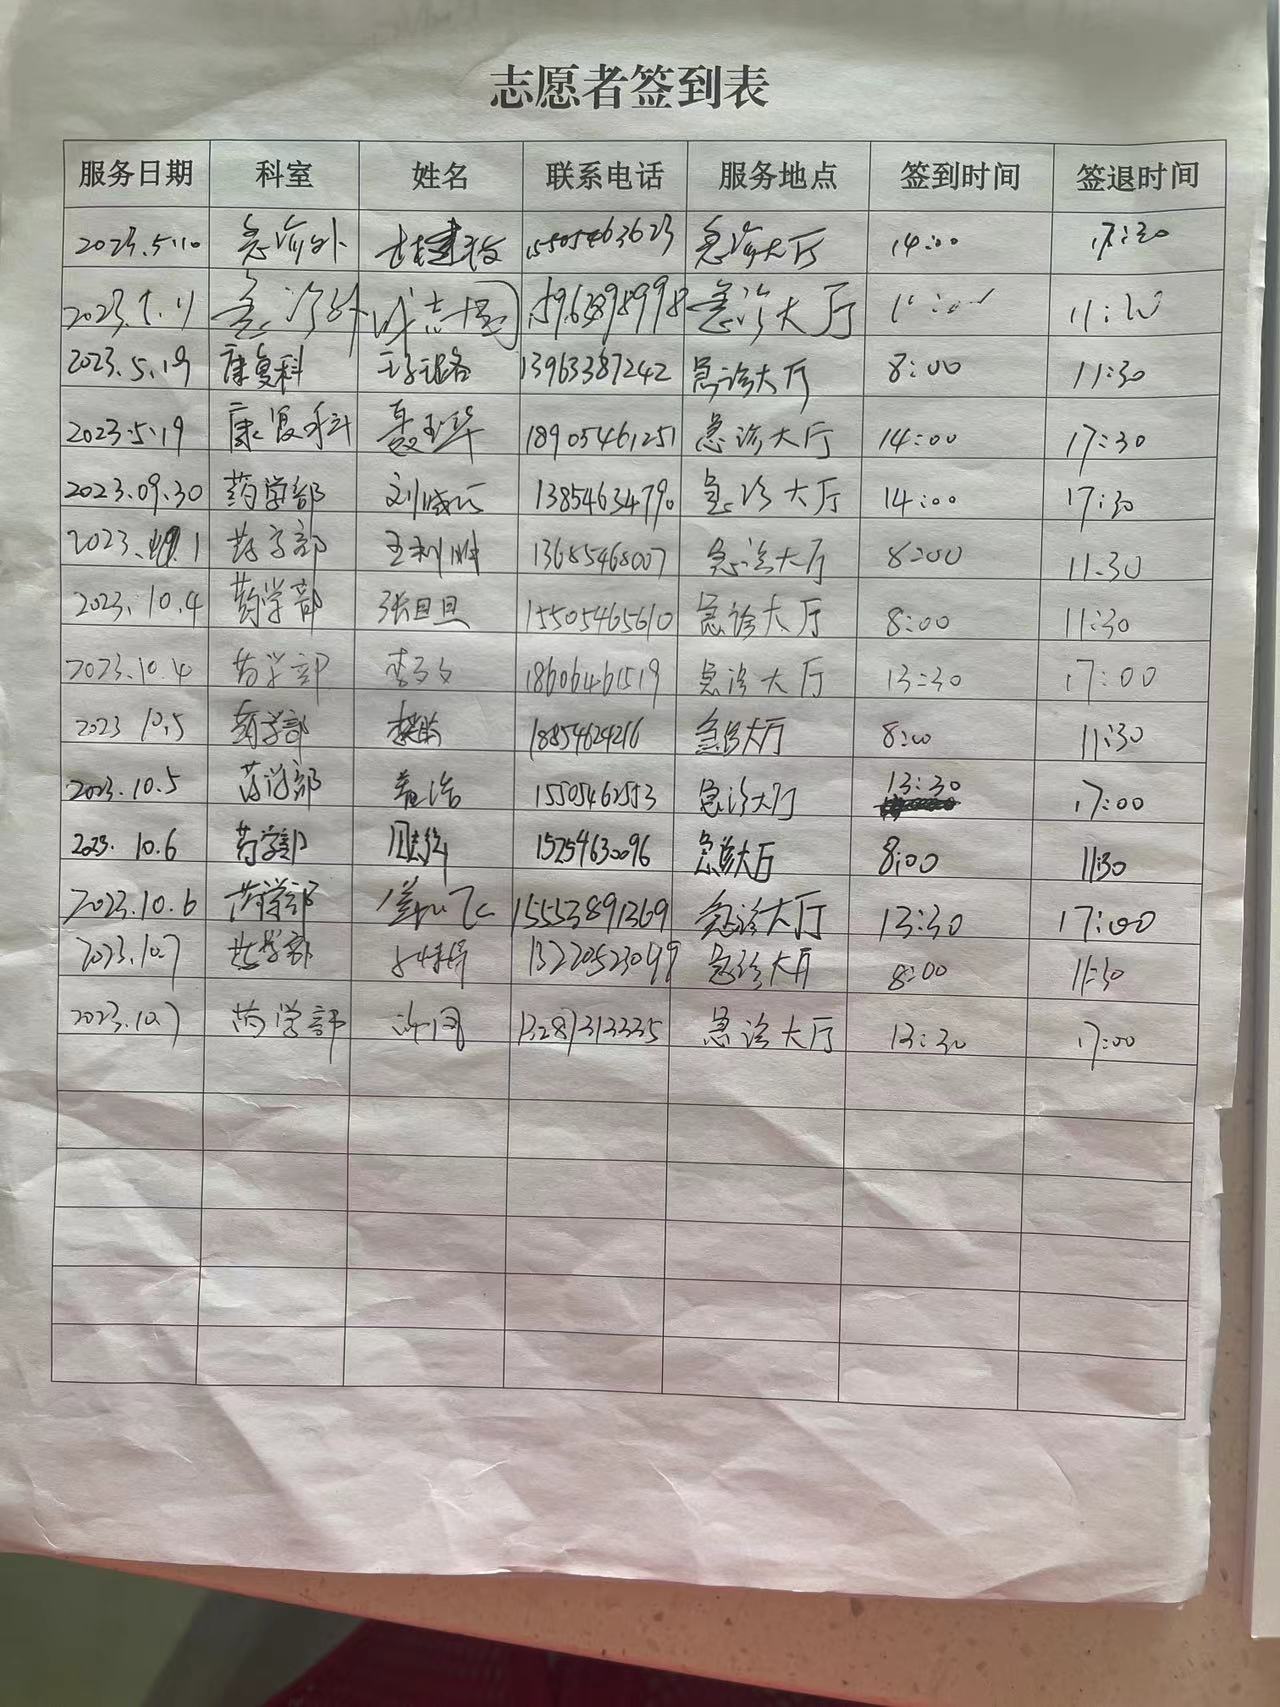 志愿者签到表
服务日期 科室 姓名 联系电话 服务地点 签到时间 签退时间
2023.5.10 急诊外 15505463623 急诊大厅 14:00 17:30
急诊外 急诊大厅
2023.5.19 康复科 13963387242 急诊大厅 8:00 11:30
2023.5.19 康复科 聂玉华 18905461251 急诊大厅 14:00 17:30
2023.09.30 药学部 13854634790 急诊大厅 14:00 17:30
药学部 王利胜 13685468007 急诊大厅 8:00 11:30
2023.10.4 药学部 张旦旦 15505465610 急诊大厅 8:00 11:30
2023.10.4 药学部 李文文 18606461519 急诊大厅 13:30 17:00
2023 10.5 药学部 18854624216 急诊大厅 8:00 11:30
2023.10.5 药学部 15505462553 急诊大厅 13:30 17:00
2023.10.6 药学部 15254630096 急诊大厅 8:00 11:30
2023.10.6 药学部 15553891369 急诊大厅 13:30 17:00
2023.10.7 药学部 13220523099 急诊大厅 8:00 11:30
2023.10.7 药学部 许同 13287313335 急诊大厅 13:30 17:00